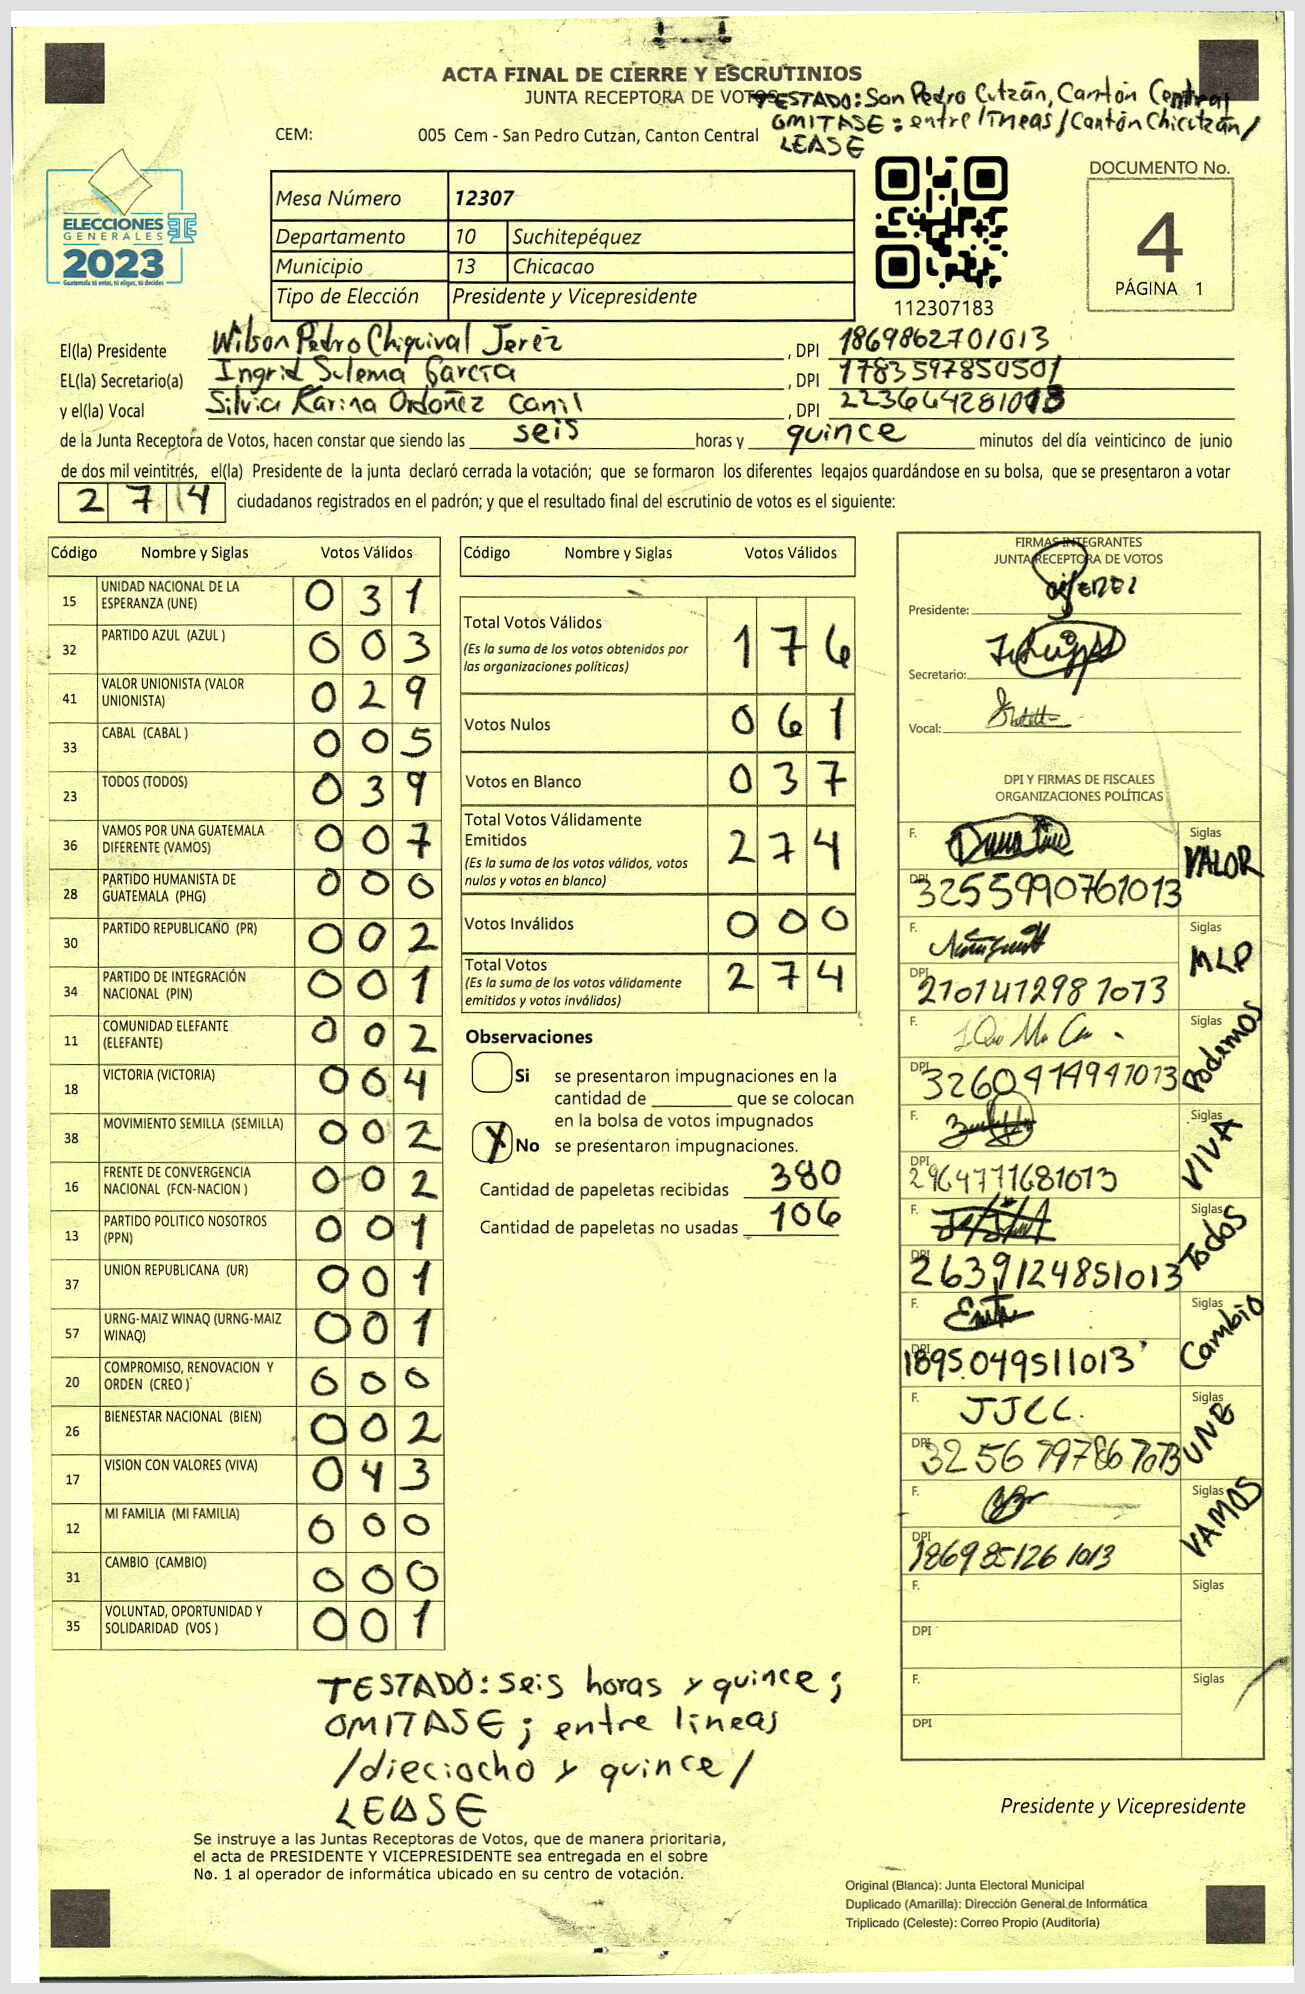 ACTA FINAL DE CIERRE Y ESCRUTINIOS
JUNTA RECEPTORA DE VOTOS
TESTADO: San Pedro Cutzán, Cantón Central
OMITASE: entre líneas /Cantón Chicutzán/
LEASE
CEM: 005 Cem - San Pedro Cutzan, Canton Central
ELECCIONES
GENERALES
2023
Guatemala tú votas, tú eliges, tú decides
Mesa Número 12307
Departamento 10 Suchitepéquez
Municipio 13 Chicacao
Tipo de Elección Presidente y Vicepresidente
112307183
DOCUMENTO No.
4
PÁGINA 1
El(la) Presidente Wilson Pedro Chiquival Jeréz , DPI 1869862701013
EL(la) Secretario(a) Ingrid Sulema García , DPI 1783597850501
y el(la) Vocal Silvia Karina Ordoñez Canil , DPI
de la Junta Receptora de Votos, hacen constar que siendo las seis horas y quince minutos del día veinticinco de junio
de dos mil veintitrés, el(la) Presidente de la junta declaró cerrada la votación; que se formaron los diferentes legajos guardándose en su bolsa, que se presentaron a votar
274 ciudadanos registrados en el padrón; y que el resultado final del escrutinio de votos es el siguiente:
Código Nombre y Siglas Votos Válidos
15 UNIDAD NACIONAL DE LA ESPERANZA (UNE) 031
32 PARTIDO AZUL (AZUL ) 003
41 VALOR UNIONISTA (VALOR UNIONISTA) 029
33 CABAL (CABAL ) 005
23 TODOS (TODOS) 039
36 VAMOS POR UNA GUATEMALA DIFERENTE (VAMOS) 007
28 PARTIDO HUMANISTA DE GUATEMALA (PHG) 000
30 PARTIDO REPUBLICANO (PR) 002
34 PARTIDO DE INTEGRACIÓN NACIONAL (PIN) 001
11 COMUNIDAD ELEFANTE (ELEFANTE) 002
18 VICTORIA (VICTORIA) 004
38 MOVIMIENTO SEMILLA (SEMILLA) 002
16 FRENTE DE CONVERGENCIA NACIONAL (FCN-NACION ) 002
13 PARTIDO POLITICO NOSOTROS (PPN) 001
37 UNION REPUBLICANA (UR) 001
57 URNG-MAIZ WINAQ (URNG-MAIZ WINAQ) 001
20 COMPROMISO, RENOVACION Y ORDEN (CREO ) 000
26 BIENESTAR NACIONAL (BIEN) 002
17 VISION CON VALORES (VIVA) 043
12 MI FAMILIA (MI FAMILIA) 000
31 CAMBIO (CAMBIO) 000
35 VOLUNTAD, OPORTUNIDAD Y SOLIDARIDAD (VOS ) 001
Código Nombre y Siglas Votos Válidos
Total Votos Válidos 176
(Es la suma de los votos obtenidos por
las organizaciones políticas)
Votos Nulos 061
Votos en Blanco 037
Total Votos Válidamente
Emitidos 274
(Es la suma de los votos válidos, votos
nulos y votos en blanco)
Votos Inválidos 000
Total Votos 274
(Es la suma de los votos válidamente
emitidos y votos inválidos)
Observaciones
Si se presentaron impugnaciones en la
cantidad de ________ que se colocan
en la bolsa de votos impugnados
X No se presentaron impugnaciones.
Cantidad de papeletas recibidas 380
Cantidad de papeletas no usadas 106
FIRMAS INTEGRANTES
JUNTA RECEPTORA DE VOTOS
Presidente:
Secretario:
Vocal:
DPI Y FIRMAS DE FISCALES
ORGANIZACIONES POLÍTICAS
F. Siglas VALOR
DPI 3255990761013
F. Siglas MLP
DPI 2101412981013
F. Siglas Podemos
DPI 3260414941013
F. Siglas VIVA
DPI 2964771681013
F. Siglas Todos
DPI 2639124851013
F. Siglas Cambio
DPI 1895049511013
F. JJCC. Siglas UNE
DPI 3256797867013
F. Siglas VAMOS
DPI 1869851261013
F. Siglas
DPI
F. Siglas
DPI
TESTADO: seis horas y quince;
OMITASE; entre líneas
/dieciocho y quince/
LEASE
Presidente y Vicepresidente
Se instruye a las Juntas Receptoras de Votos, que de manera prioritaria,
el acta de PRESIDENTE Y VICEPRESIDENTE sea entregada en el sobre
No. 1 al operador de informática ubicado en su centro de votación.
Original (Blanca): Junta Electoral Municipal
Duplicado (Amarilla): Dirección General de Informática
Triplicado (Celeste): Correo Propio (Auditoría)